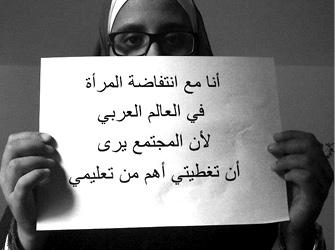 أنا مع انتفاضة المرأة
في العالم العربي
لأن المجتمع يرى
أن تغطيتي أهم من تعليمي